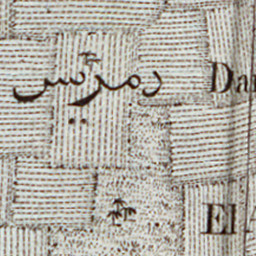 دمريس Dam
El A